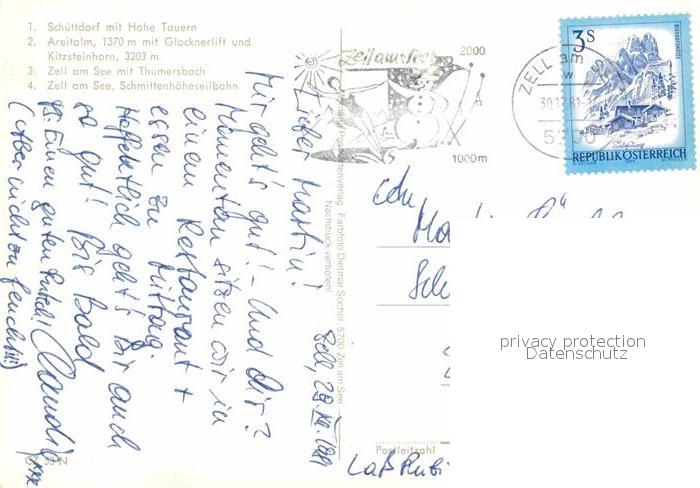 1. Schüttdorf mit Hohe Tauern
2. Areitalm, 1370 m mit Glocknerlift und
Kitzsteinhorn, 3203 m
3. Zell am See mit Thumersbach
4. Zell am See, Schmittenhöheseilbahn
Zell am See
2000
1000m
ZELL am
30.12.81
5700
3S
REPUBLIK ÖSTERREICH
Zell, 29.XII.1981
Lieber Martin!
Mir geht's gut! - Und Dir?
Momentan sitzen wir in
einem Restaurant +
essen zu Mittag.
Hoffentlich geht's Dir auch
so gut! Bis Bald
Claudia
PS: Einen guten Rutsch!
(Aber nicht zu feucht!!!)
Farbfoto Dietmar Sochor, 5700 Zell am See
Nachdruck verboten!
privacy protection
Datenschutz
Postleitzahl